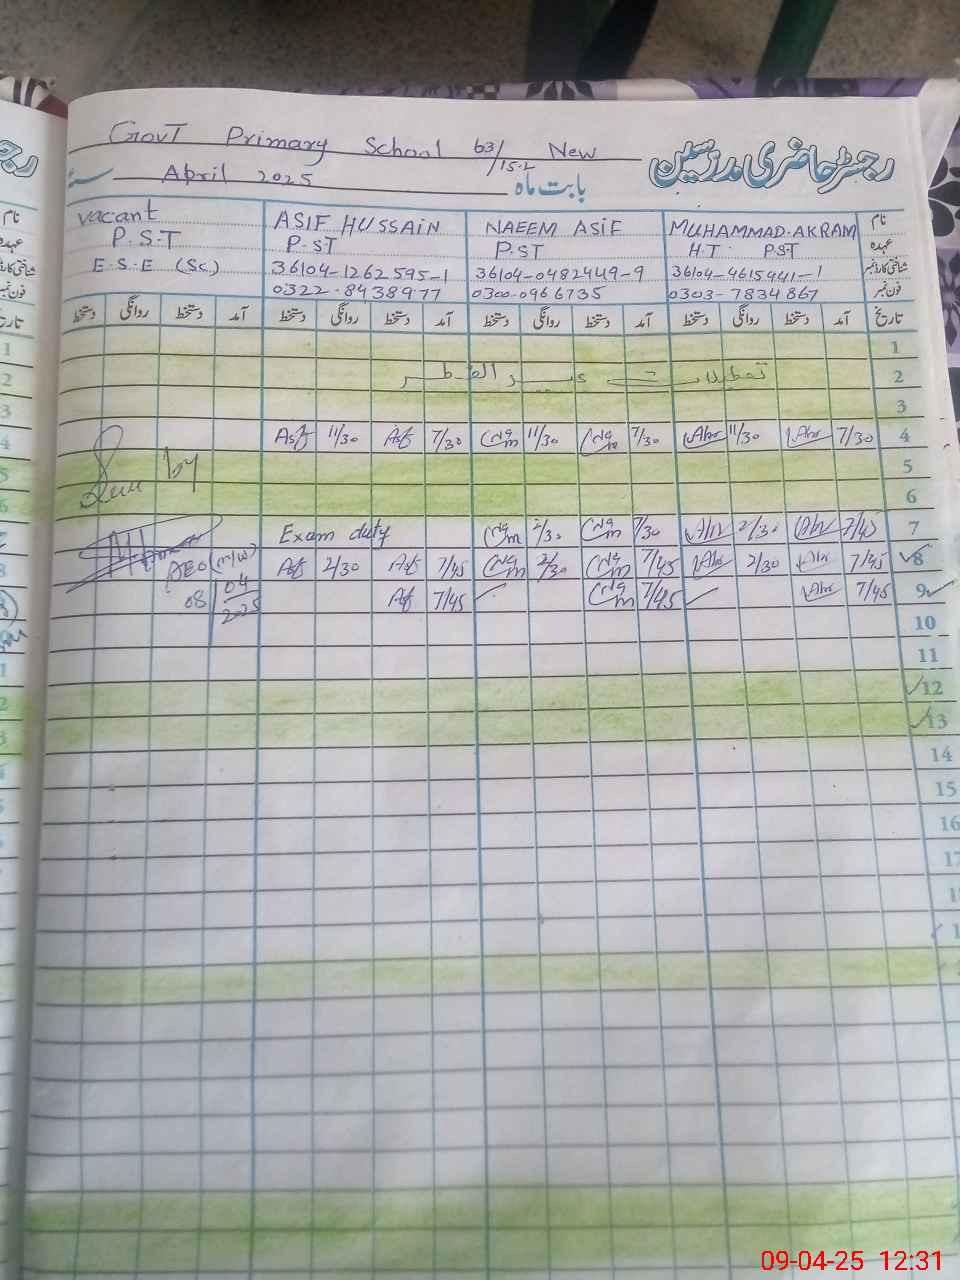 GovT Primary School 63/15.2 New
رجسٹر حاضری مدرسین
April 2025
بابت ماہ
vacant ASIF HUSSAIN NAEEM ASIF MUHAMMAD.AKRAM نام
P.S.T P.ST P.ST H.T PST عہدہ
E.S.E (Sc.) 36104-1262595-1 36104-0482449-9 36104-4615441-1 شناختی کارڈ نمبر
0322-8438977 0300-0966735 0303-7834867 فون نمبر
دستخط روانگی دستخط آمد دستخط روانگی دستخط آمد دستخط روانگی دستخط آمد دستخط روانگی دستخط آمد تاریخ
1
تعطیلات عید الفطر 2
3
Asf 11/30 Asf 7/30 11/30 7/30 11/30 7/30 4
5
6
Exam duty 2/30 7/30 2/30 7/45 7
AEO (M/W) Asf 2/30 Asf 7/45 2/30 7/45 2/30 7/45 8
08 04 2025 Asf 7/45 7/45 7/45 9
10
11
12
13
14
15
16
09-04-25 12:31